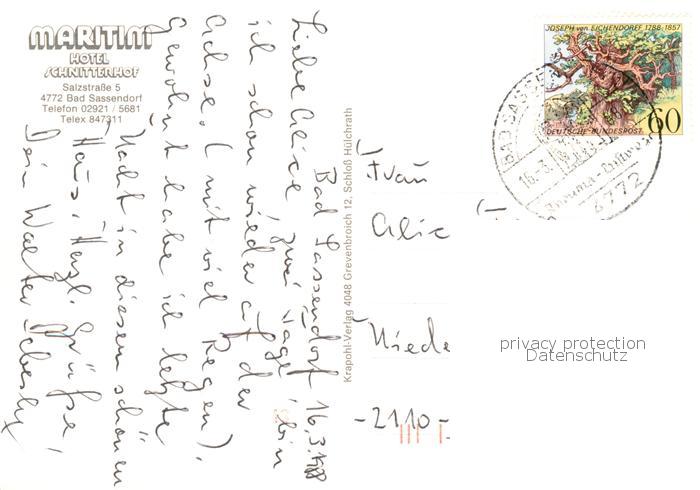 MARITIM
HOTEL
SCHNITTERHOF
Salzstraße 5
4772 Bad Sassendorf
Telefon 02921 / 5681
Telex 847311
Bad Sassendorf 16.3.88
Liebe Alice, zwei Tage bin
ich schon wieder auf der
Achse. (mit viel Regen).
Gewohnt habe ich letzte
Nacht in diesem schönen
Haus. Herzl. Grüße,
Dein Walter
Krapohl-Verlag 4048 Grevenbroich 12, Schloß Hülchrath
JOSEPH von EICHENDORFF 1788-1857
DEUTSCHE BUNDESPOST
60
BAD SASSEN
16.-3.
4772
Frau
Alic
Niede
-2110-
privacy protection
Datenschutz